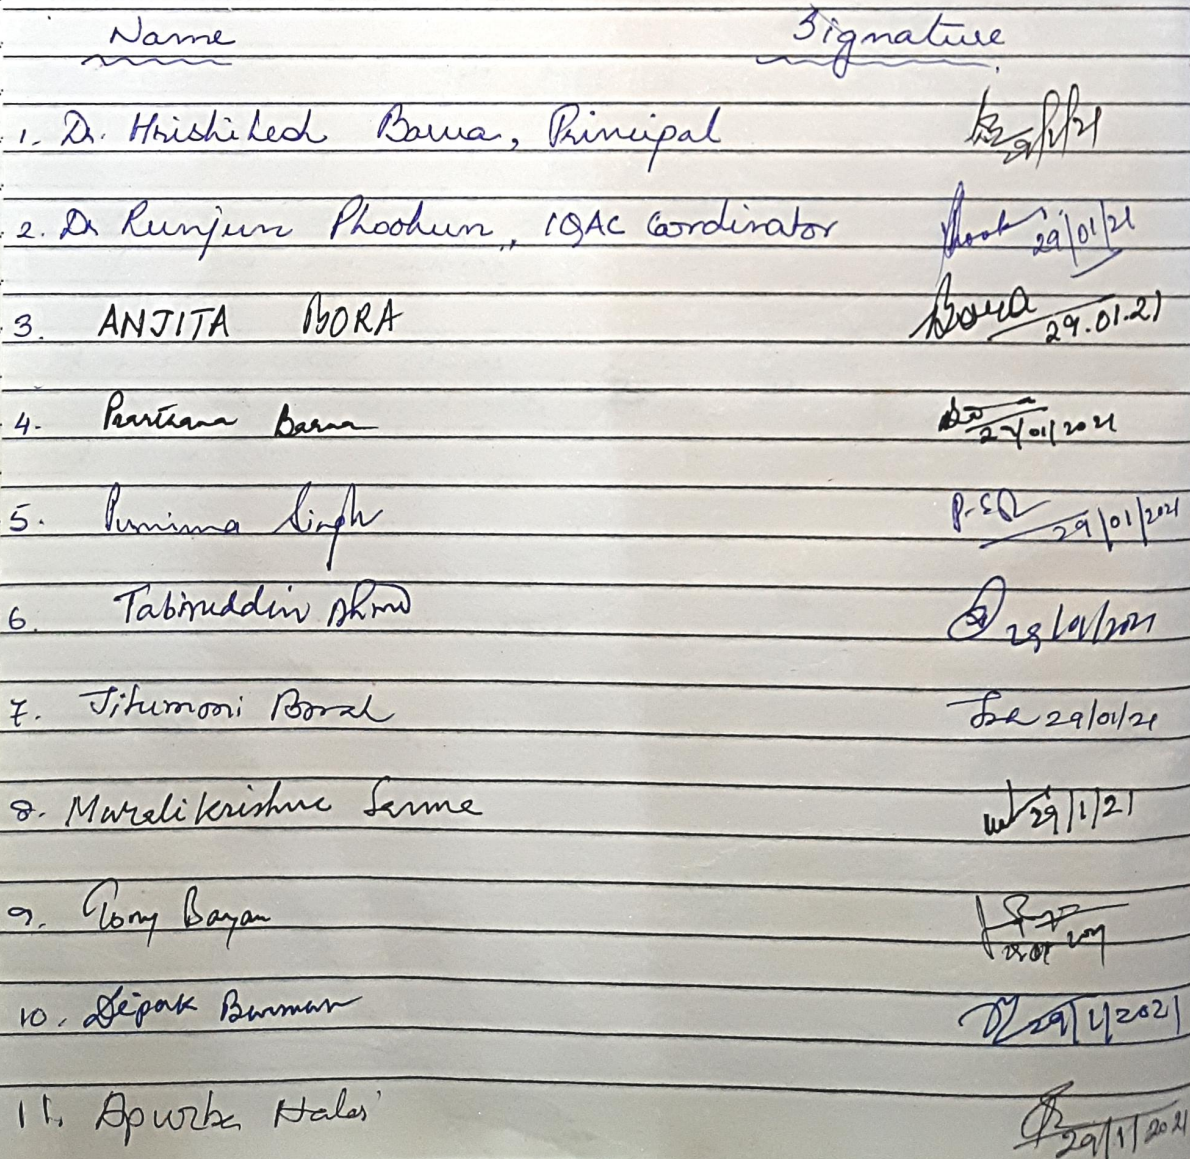 Name Signature
1. Dr. Hrishikesh Barua, Principal
2. Dr Runjun Phookun, IQAC Coordinator 29/01/21
3. ANJITA BORA Bora 29.01.21
4. Prarthana Barua 29/01/2021
5. Purnima Singh 29/01/2021
6. Tabiruddin Ahmed 29/01/2021
7. Jitumoni Borah 29/01/21
8. Muralikrishna Sarma 29/1/21
9. Tony Bayan
10. Dipak Barman 29/1/2021
11. Apurba Haloi 29/1/2021